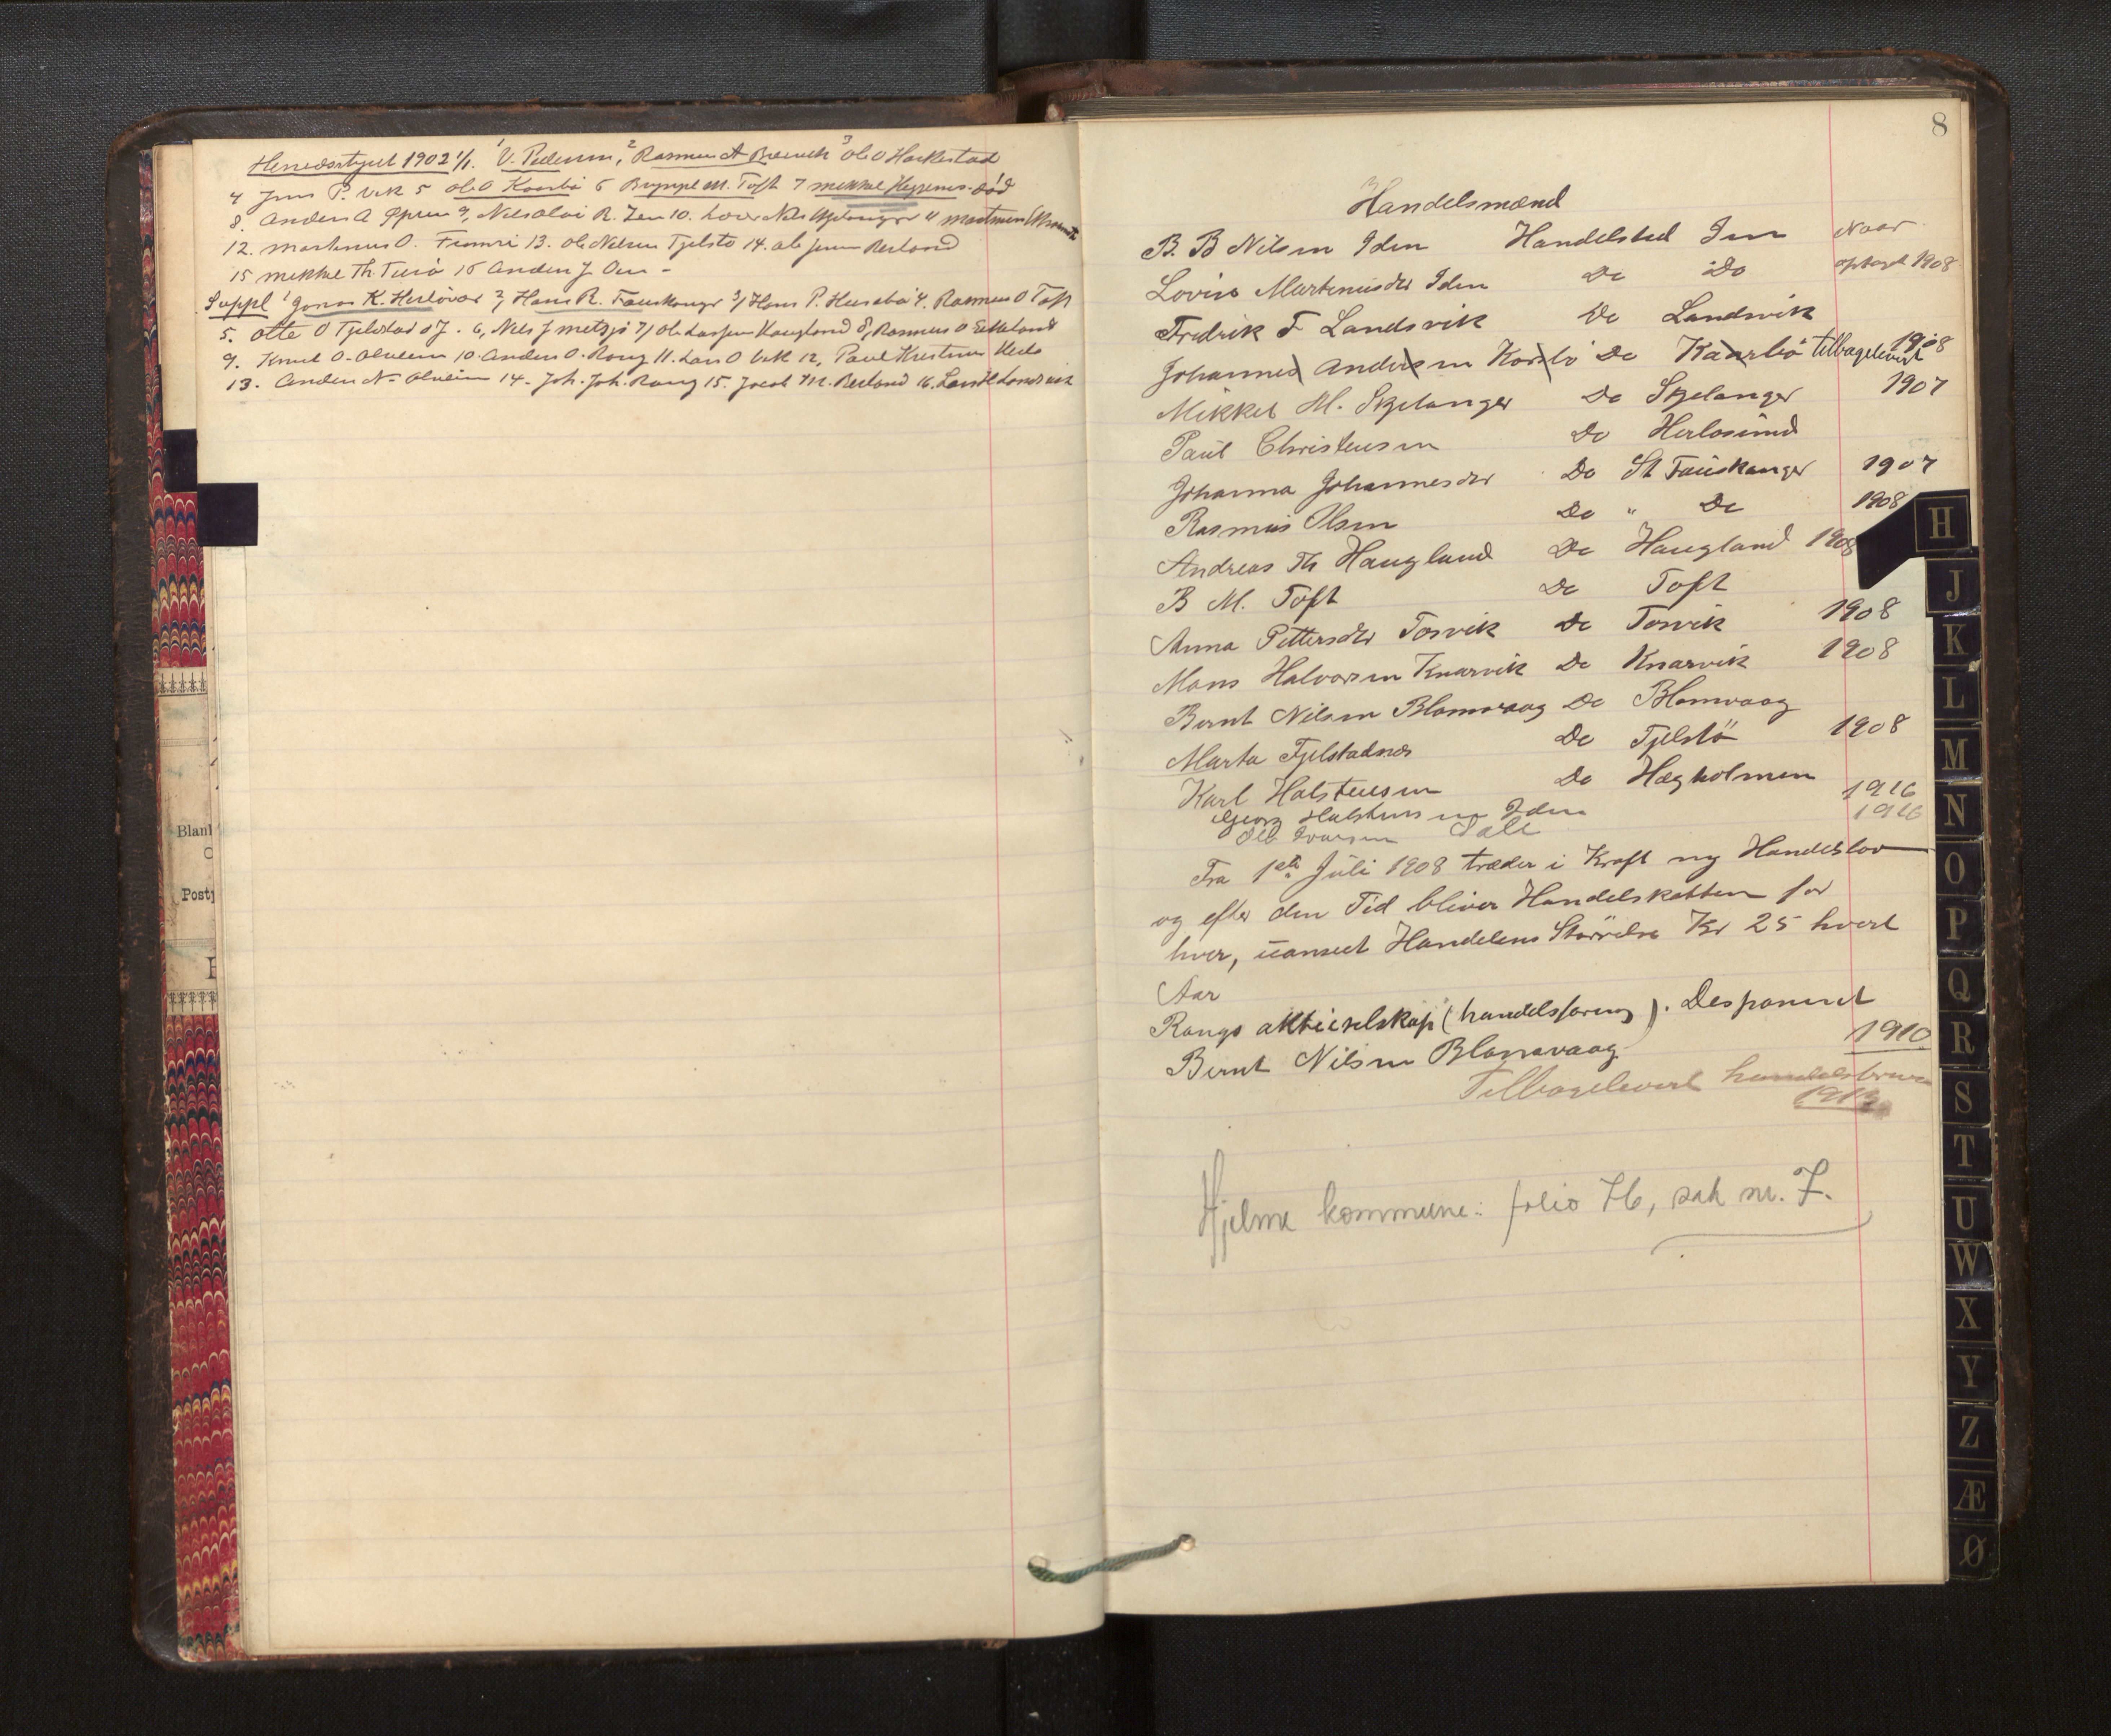 Herredsstyret 1902 1/1. 1 V. Pedersen, 2 Rasmus A 3 Ole O Harkestad
4 Jens P. Vik 5 Ole O Kaarbö 6 Brynjel M. Toft 7 Mikkel död
8. Anders A Øpsen 9, Nils Olai R. 10. Nils 11
12. Martinus O. 13. Ole Nilsen Tjelsto 14. Ole Jensen Berland
15 Mikkel Th. 16 Anders J. Oen -
Suppl 1 Jonas K. Herlövær 2) Hans R. Fauskanger 3) Hans P. Husebö 4. Rasmus O Toft
5. Otte O Tjeldstad d J. 6, Nils J 7) Ole Larssen Haugland 8, Rasmus O
9. Knud O. Alveim 10. Anders O. Rong 11. Lars O Vik 12, Paul Kristensen
13. Anders N. Alveim 14. Joh. Joh. Rong 15. Jacob M. Berland 16. Landsvik
8
Handelsmænd
B. B Nilsen Iden Handelsted Iden Naar
Lovise Martinusdtr Iden Do Do optaget 1908
Fredrik F Landsvik Do Landsvik
Johannes Andersen Korsbö Do Kaarbö tilbagelevert 1908
Mikkel M. Skjelanger Do Skjelanger 1907
Paul Christensen Do Herlosund
Johanna Johannesdtr Do St Fauskanger 1907
Rasmus Olsen Do " Do 1908
Andreas Th Haugland Do Haugland 1908
B M. Toft Do Toft
Anna Pettersdtr Torsvik Do Torsvik 1908
Mons Halvorsen Knarvik Do Knarvik 1908
Bernt Nilsen Blomvaag Do Blomvaag
Marta Tjelstadnes Do Tjelstö 1908
Karl Halstensen Do Hægholmen
Georg Halstensen Iden 1916
Ole Iversen 1916
Fra 1ste Juli 1908 træder i Kraft ny Handelslov
og efter den Tid bliver Handelskatten for
hver, uanseet Handelens Størrelse Kr 25 hvert
Aar
Rongs aktieselskap (handelsforening). Desponent
Bernt Nilsen Blomvaag 1910
Tilbagelevert handelsbrevet
Hjelme kommune: folio 76, sak nr. 7.
H
J
K
L
M
N
O
P
Q
R
S
T
U
W
X
Y
Z
Æ
Ø